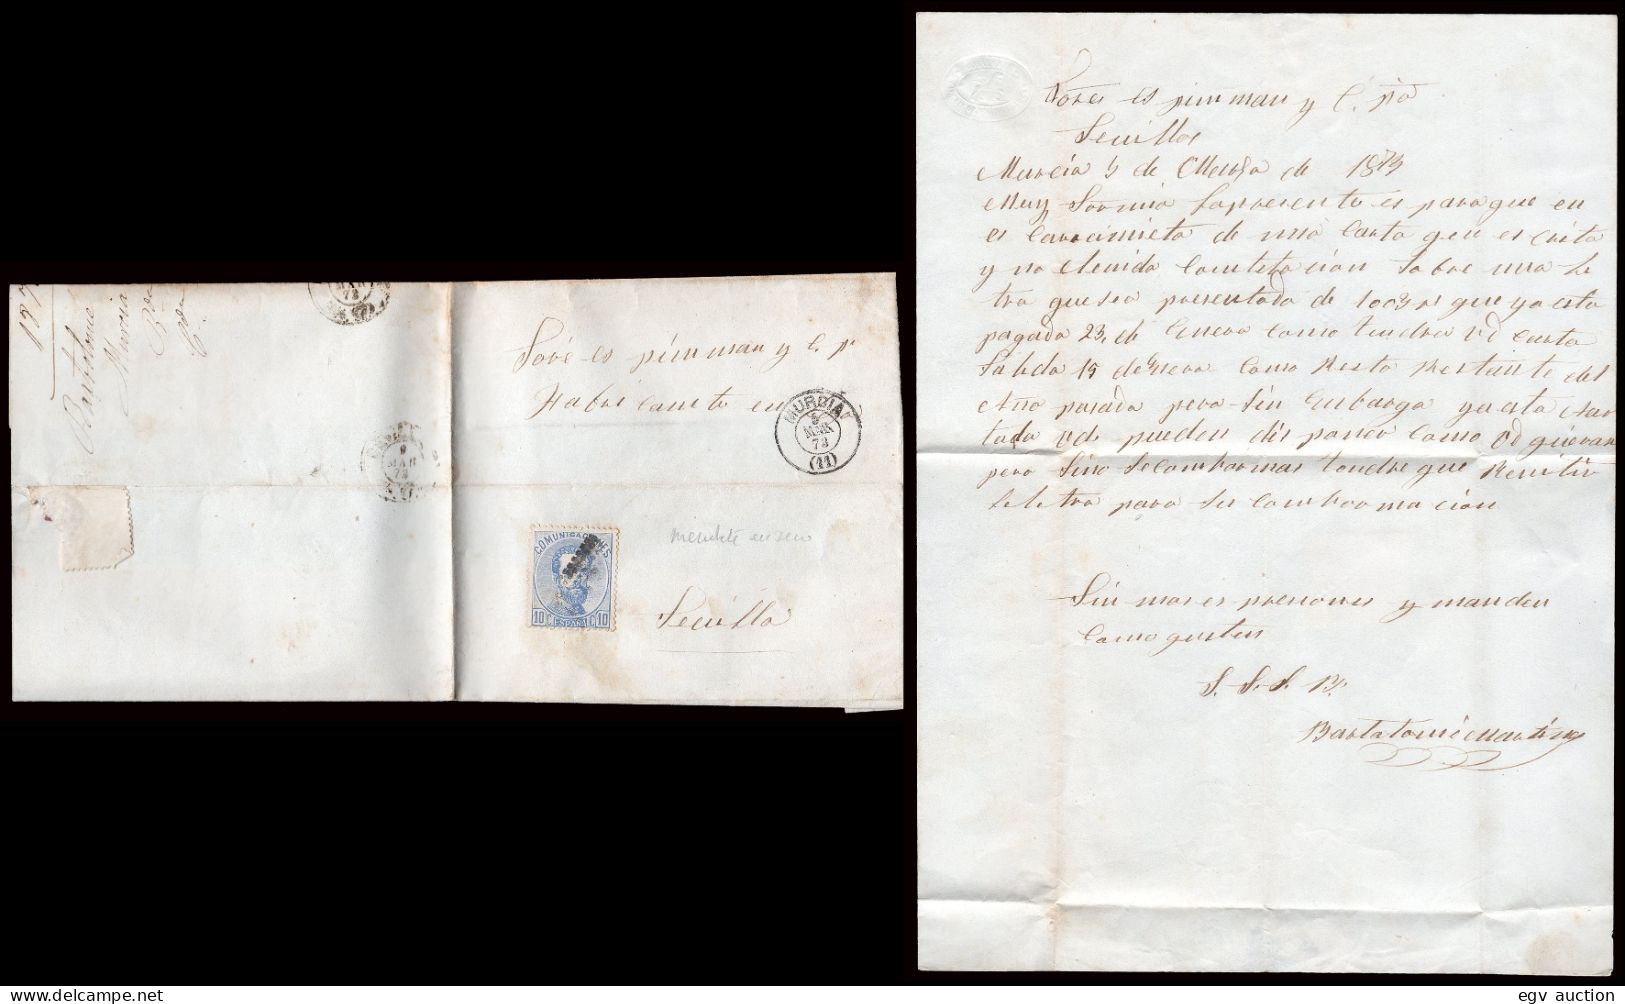 187
Bartolome
Murcia
MAR
73
9
MAR
73
Sové es pinmman y C. pª
Fabricante en
MURCIA
5
MAR
73
(11)
COMUNICACIONES
10 C. ESPAÑA C. 10
Sevilla
es pinmman y C. pª
Sevilla
Murcia 5 de Marso de 1873
Muy Sormio lapresente es paraque en
el conocimieto de mia Carta que es crita
y no tenida Contetacion Sabre una le
tra que sea presentada de que ya esta
pagada 23 de Enero Como tendra Vd Carta
Salida 15 de Enera Como Resto Restante del
Año pasado pero Sin Embargo ya esta
Vds pueden dis poner Como Vd quieran
pero Sino Se comborman tendre que Remitir
le letra para Su Comborma cion
Sin mas es presiones y manden
Como gusten
S. S. S. B.
Bartatomé Martinez
egv auction